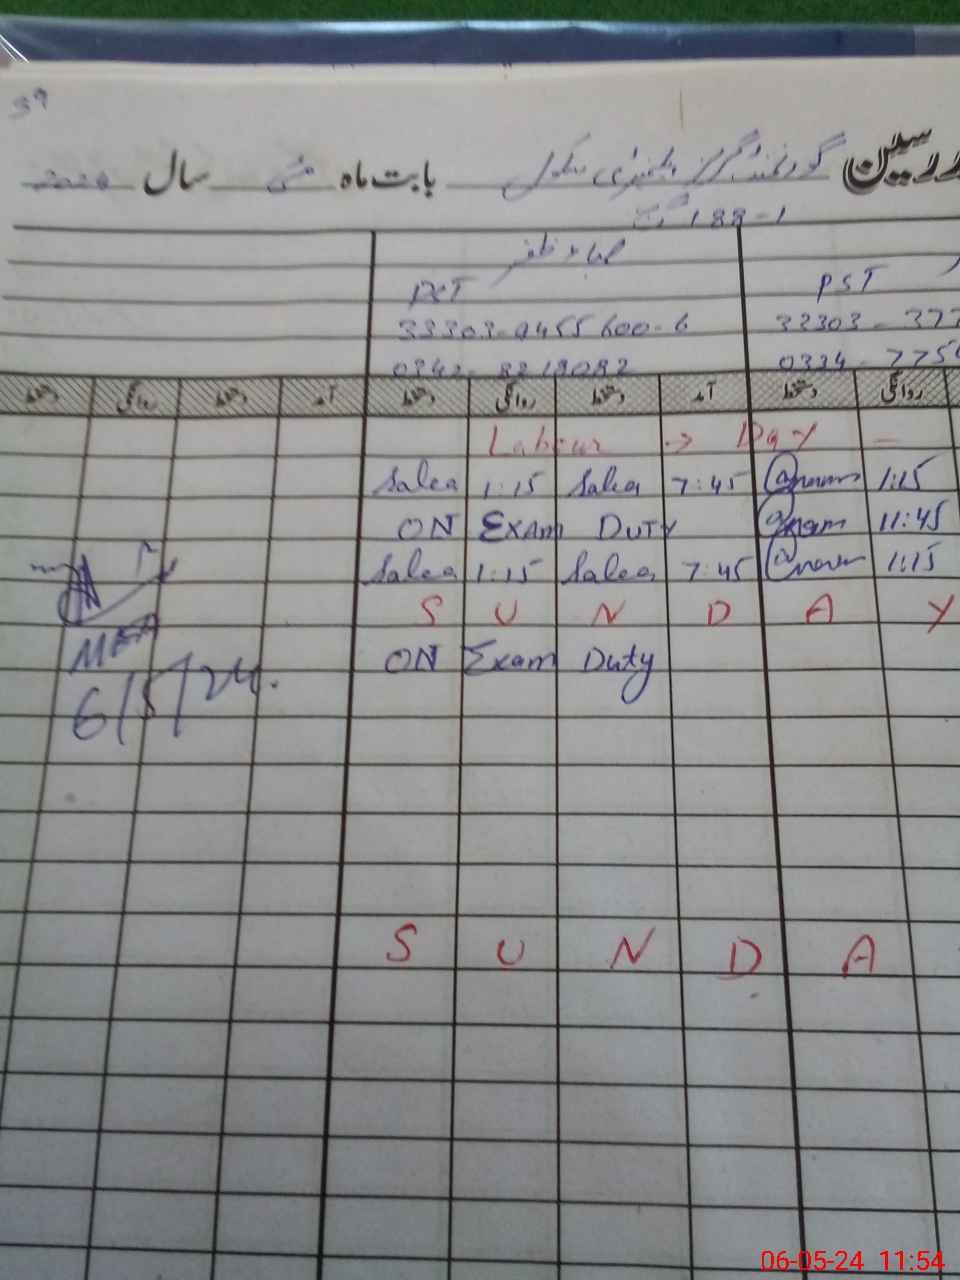 39
رسین گورنمنٹ گرلز ایلیمنٹری سکول بابت ماہ مئی سال
188-1
PST PST
33303-9455600-6 32303-377
0342-8219082 0334-775
دستخط روانگی دستخط آمد دستخط روانگی دستخط آمد دستخط روانگی
Labour → Day –
Salea 1:15 Salea 7:45 1:15
ON Exam DUTY 11:45
Salea 1:15 Salea 7:45 1:15
S U N D A Y
ON Exam Duty
MEA
6/5/24.
S U N D A
06-05-24 11:54